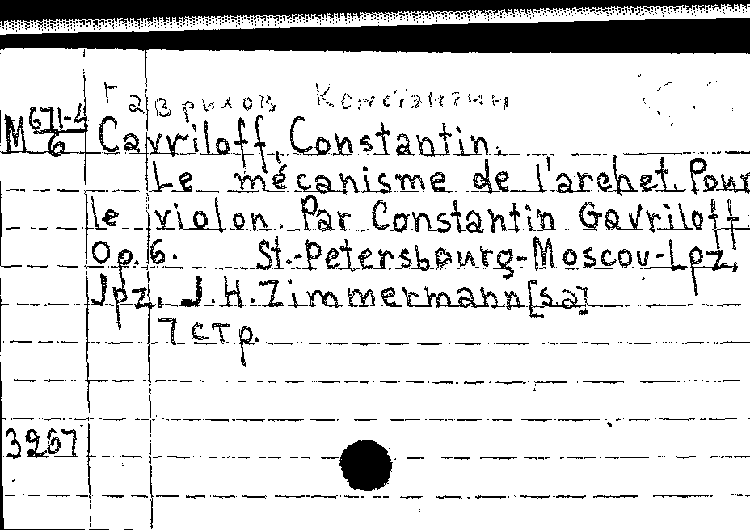 Гаврилов Константин
M 671-4/6 Cavriloff, Constantin.
Le mécanisme de l'archet. Pour
le violon. Par Constantin Gavriloff
Op. 6. St.-Petersbourg-Moscou-Lpz,
Jpz, J. H. Zimmermann [s.a]
7 стр.
3267